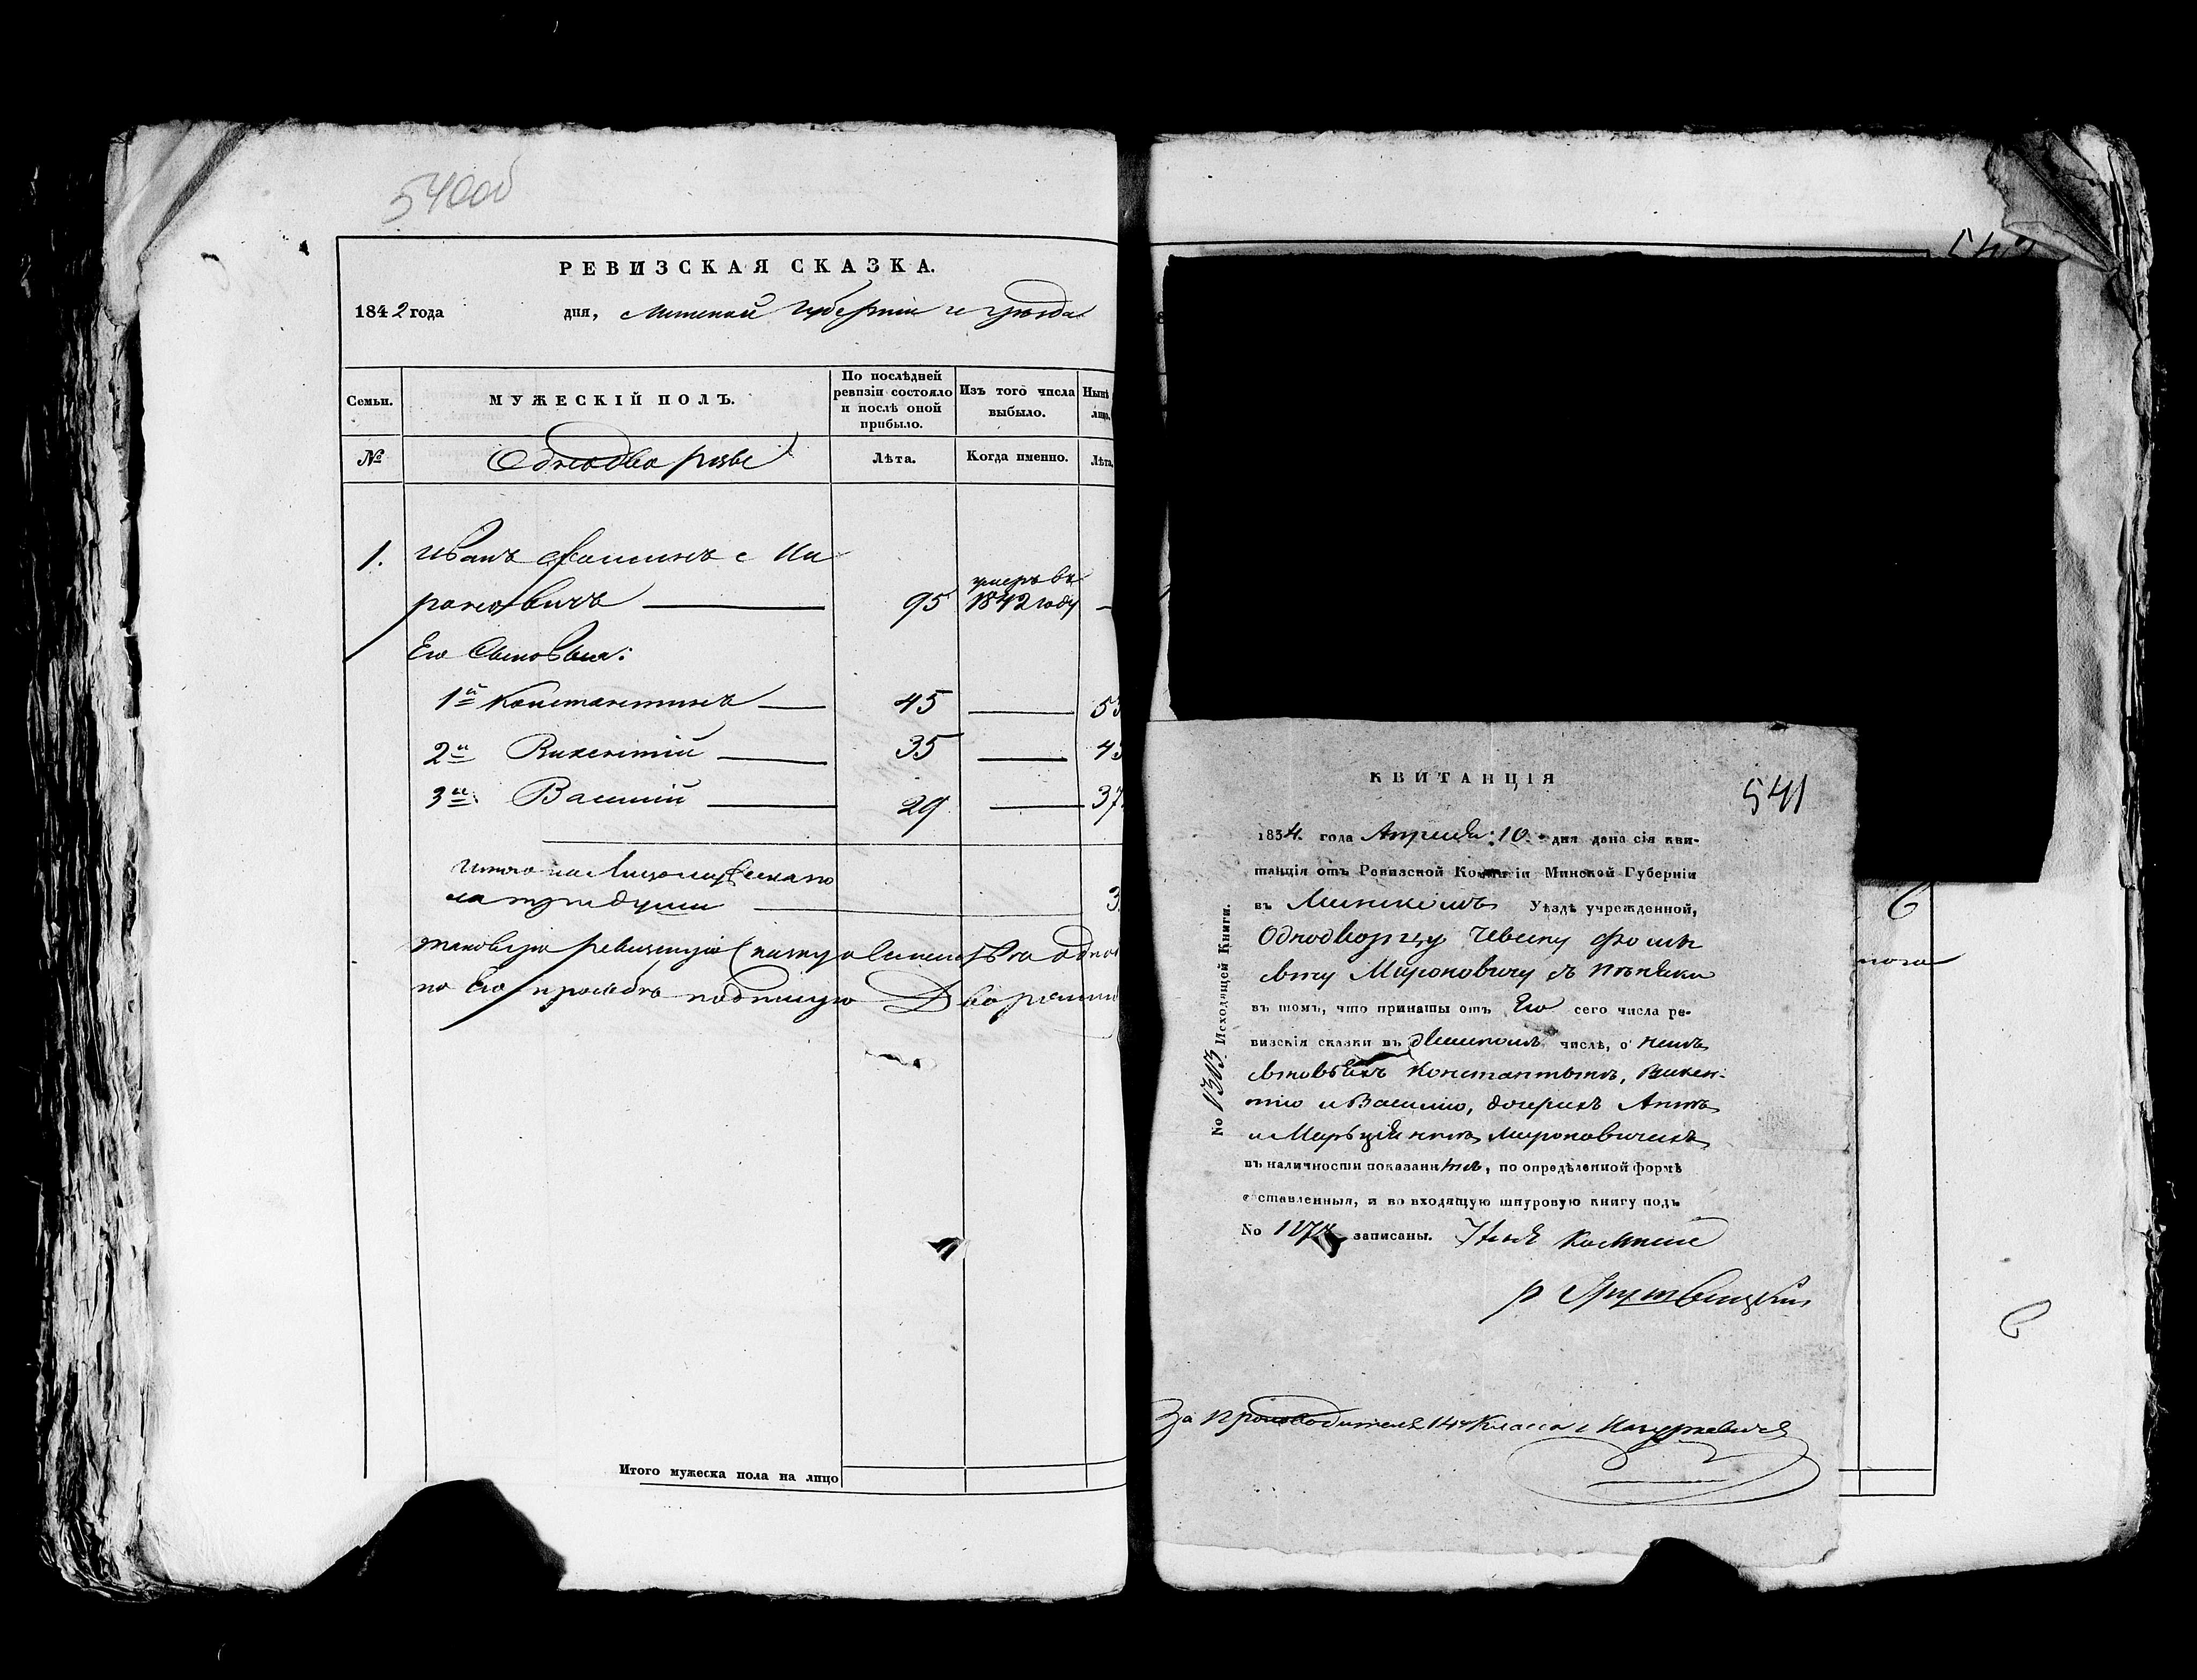 540об
РЕВИЗСКАЯ СКАЗКА.
1842 года дня, Минской Губерніи и уѣзда
Семьи.
МУЖЕСКІЙ ПОЛЪ.
По послѣдней ревизіи состояло и послѣ оной прибыло.
Изъ того числа выбыло.
Нынѣ
лицо,
№
Однодворцы
Лѣта.
Когда именно.
Лѣта.
1. Иванъ Фоминъ с. Ми
роновичъ 95 умеръ въ 1842 году
Его Сыновья:
1й Константинъ 45
2й Викентій 35 45
3й Василій 29 37
Итого на лицо мужеска по
ла три души 3
таковую ревизскую сказку
по Его прозьбѣ подписую Дворянин
Итого мужеска пола на лицо
542
6
КВИТАНЦІЯ
541
1834. года Апреля 10 дня дана сія кви-
танція отъ Ревизской Коммиссіи Минской Губерніи
въ Минскомъ Уѣздѣ учрежденной,
Однодворцу Ивану Фоми
сыну Мироновичу
въ томъ, что приняты отъ Его сего числа ре-
визскія сказки въ числѣ, о немъ
сыновьяхъ Константынѣ, Викен-
тію и Василію, дочерихъ Аннѣ
и Марцыяннѣ Мироновичахъ
въ наличности показанныя, по опредѣленной формѣ
составленныя, и во входящую шнуровую книгу подъ
No записаны. Членъ Коммисіи
No 1303 Исходящей Книги.
За Производителя 14 Класса